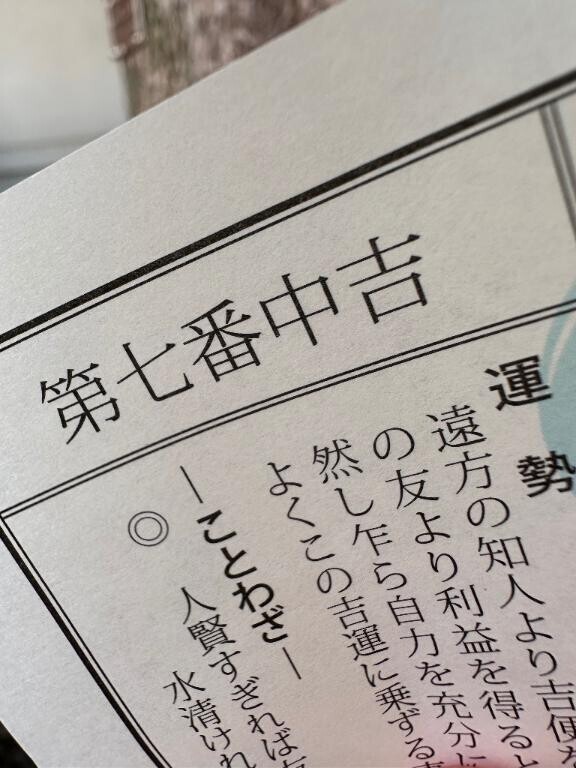 第七番中吉
運勢
遠方の知人より吉便
の友より利益を得ると
然し乍ら自力を充分に
よくこの吉運に乗ずる
―ことわざ―
◎
人賢すぎれば
水清けれ